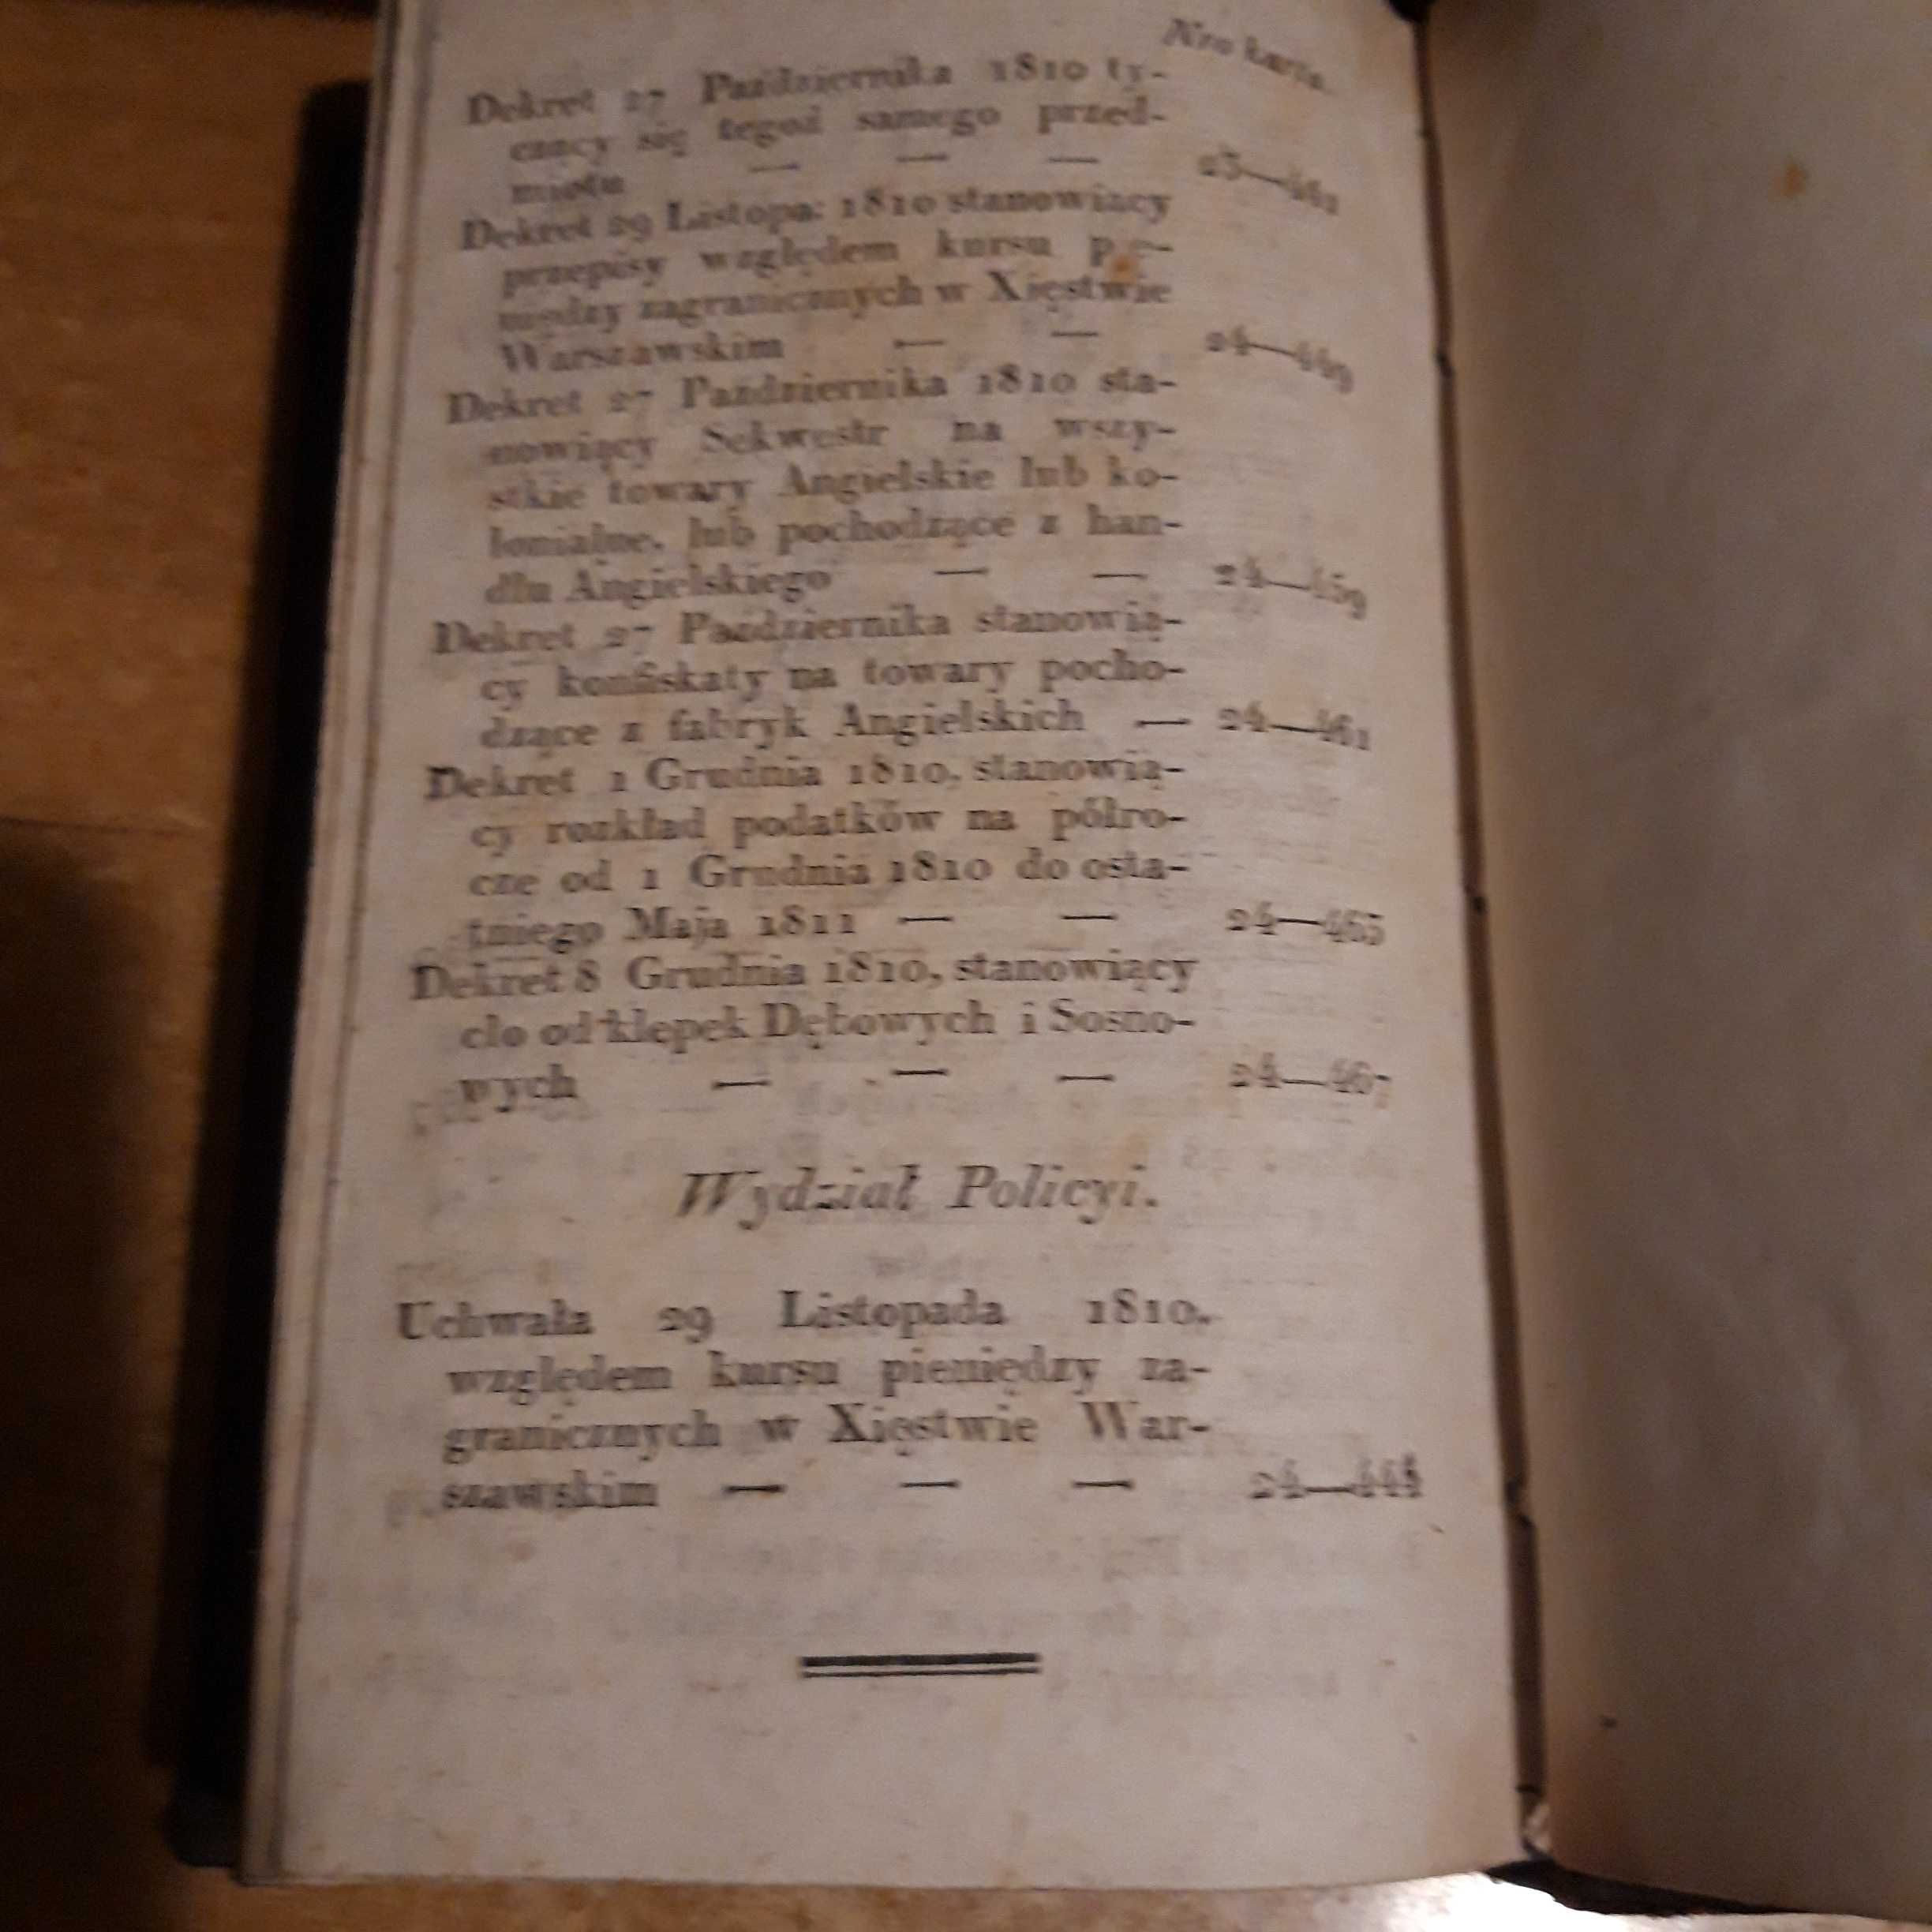 Nro karta.
Dekret 27 Pazdziernika 1810 ty-
czący się tegoż samego przed-
miotu — — — 23—441
Dekret 29 Listopa: 1810 stanowiący
przepisy względem kursu pie-
niędzy zagranicznych w Xięstwie
Warszawskim — — 24—449
Dekret 27 Pazdziernika 1810 sta-
nowiący Sekwestr na wszy-
stkie towary Angielskie lub ko-
lonialne, lub pochodzące z han-
dlu Angielskiego — — 24—459
Dekret 27 Pazdziernika stanowią-
cy konfiskaty na towary pocho-
dzące z fabryk Angielskich — 24—461
Dekret 1 Grudnia 1810, stanowią-
cy rozkład podatków na półro-
cze od 1 Grudnia 1810 do osta-
tniego Maja 1811 — — 24—463
Dekret 8 Grudnia 1810, stanowiący
cło od klepek Dębowych i Sosno-
wych — — — 24—467
Wydział Policyi.
Uchwała 29 Listopada 1810.
względem kursu pieniędzy za-
granicznych w Xięstwie War-
szawskim — — — 24—444